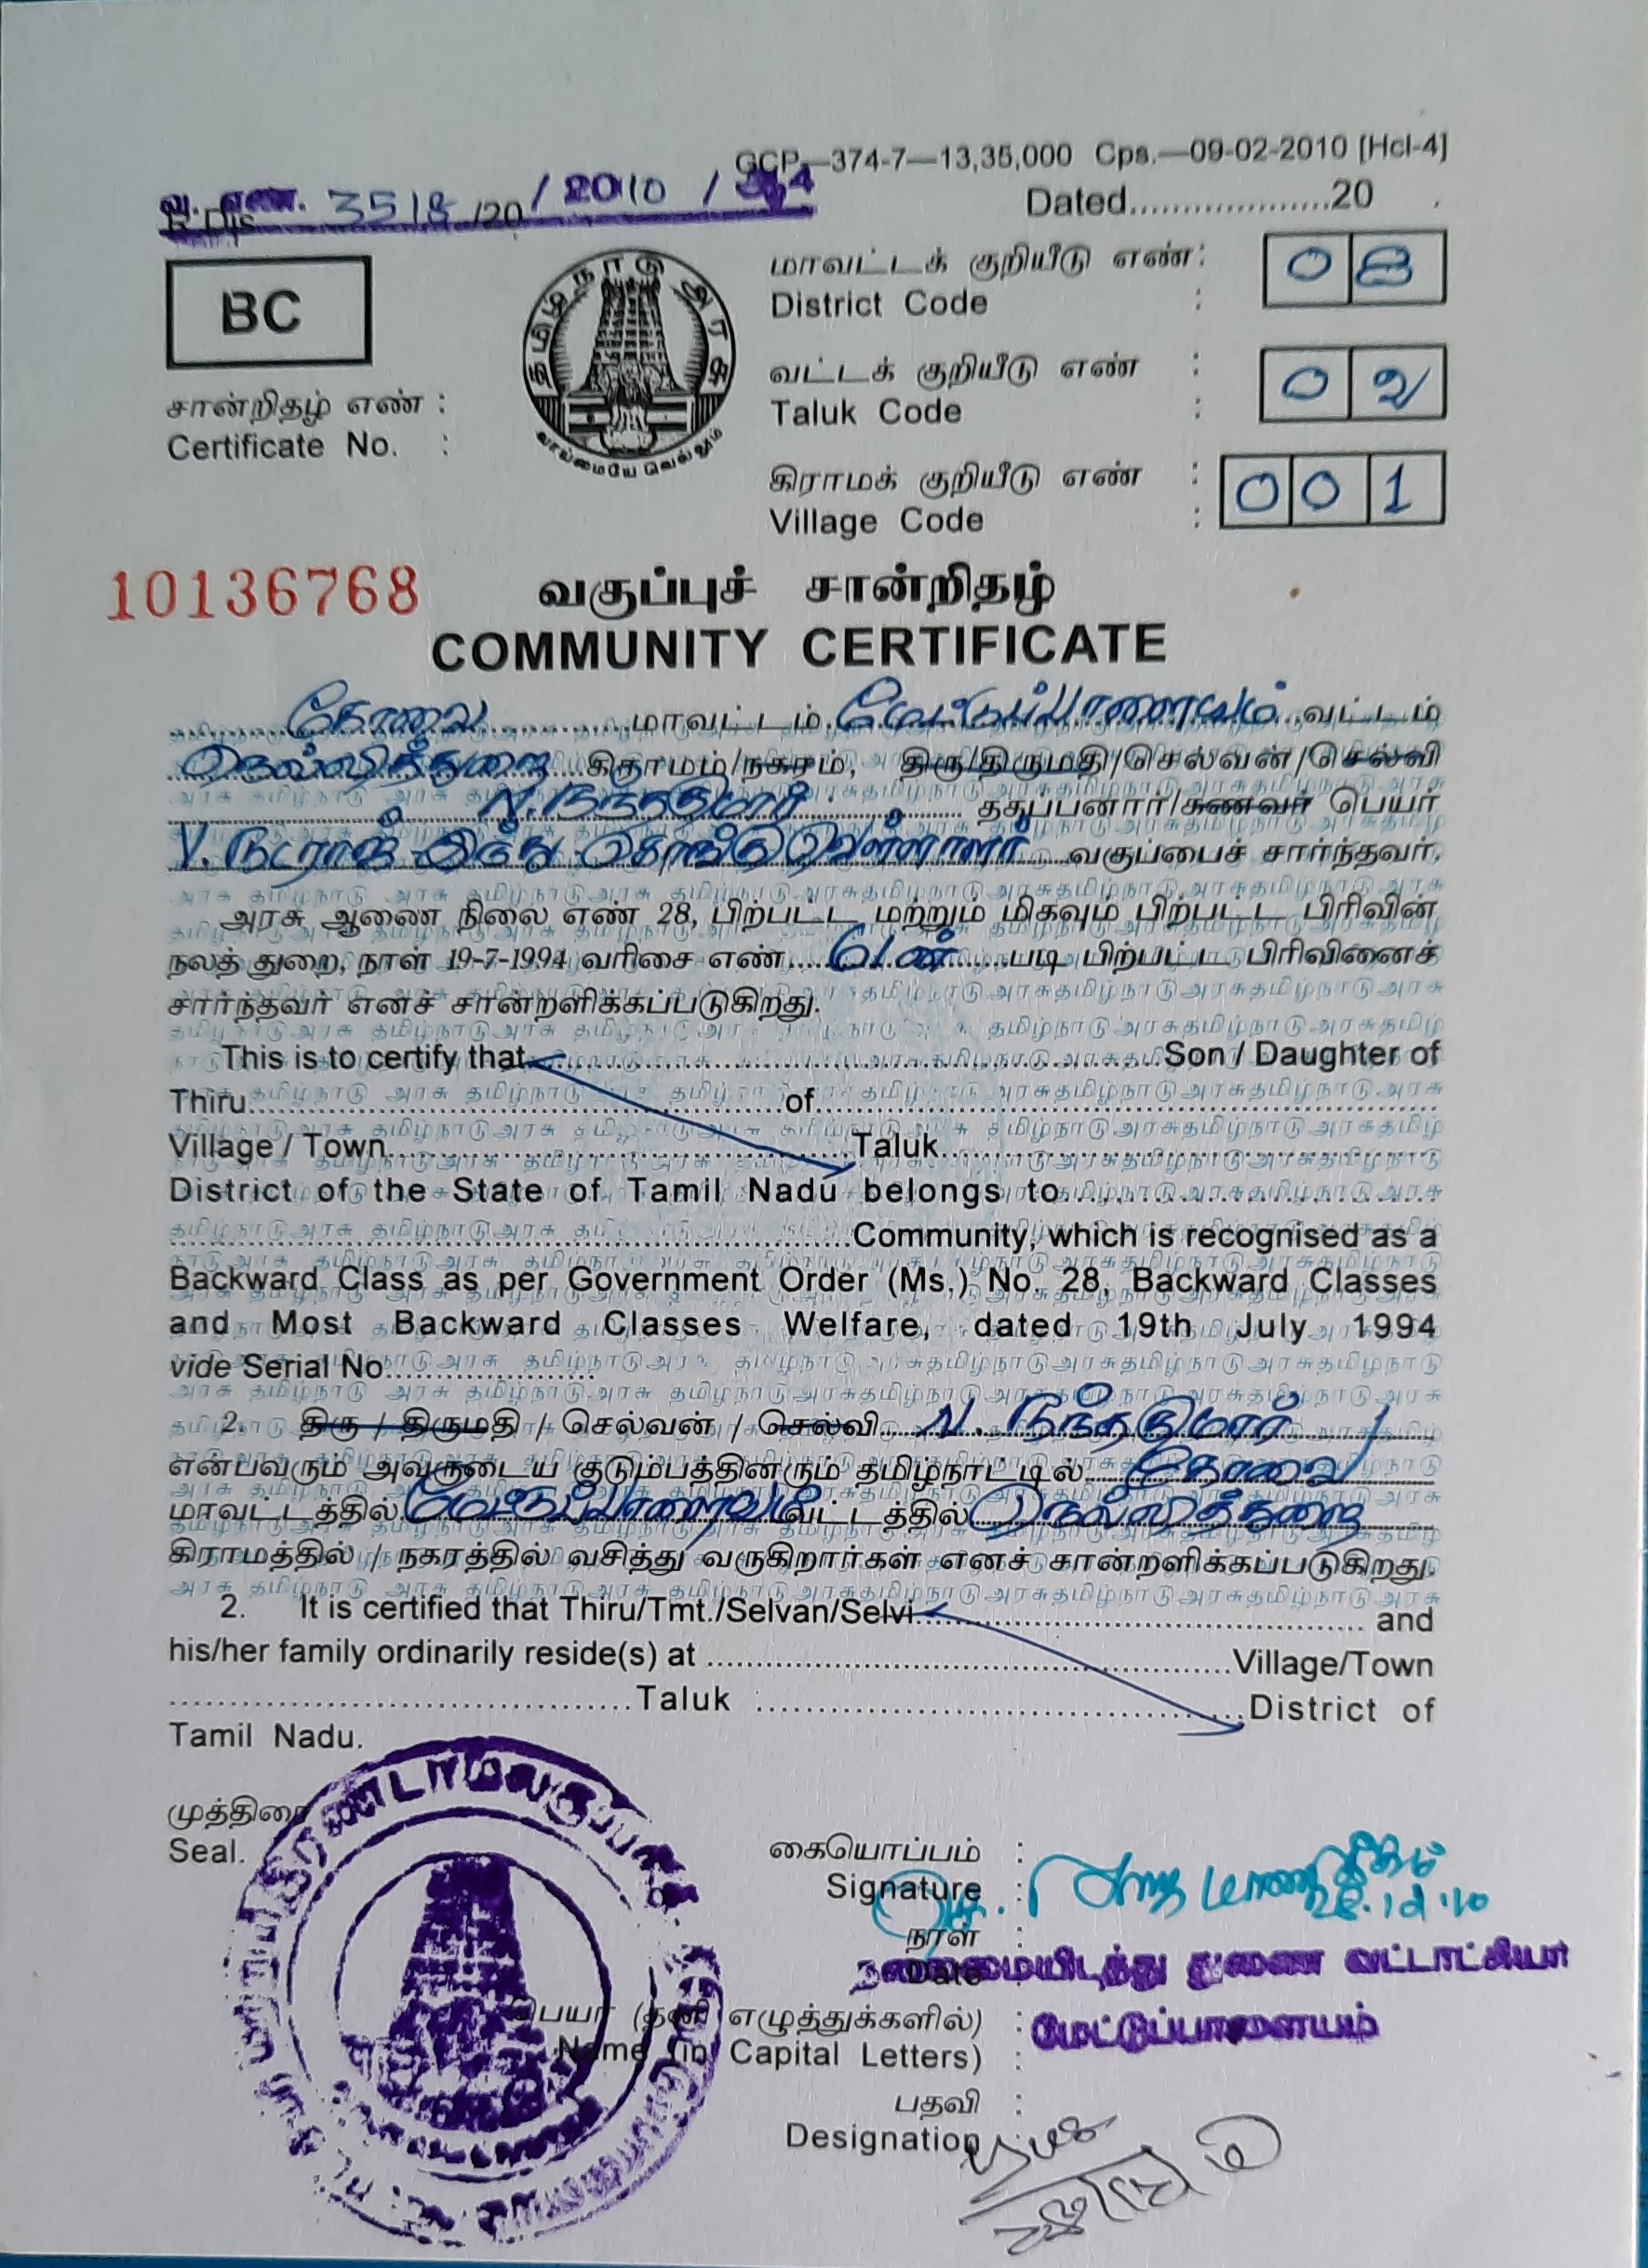 GCP—374-7—13,35,000 Cps.—09-02-2010 [Hcl-4]
வ. எண். 3518 /20 / 2010 /
R Dis
Dated....................20
BC
தமிழ்நாடு அரசு
வாய்மையே வெல்லும்
மாவட்டக் குறியீடு எண் : 08
District Code :
வட்டக் குறியீடு எண் : 02
Taluk Code :
சான்றிதழ் எண் :
Certificate No. :
கிராமக் குறியீடு எண் : 001
Village Code :
10136768
வகுப்புச் சான்றிதழ்
COMMUNITY CERTIFICATE
கோவை மாவட்டம் மேட்டுப்பாளையம் வட்டம்
நெல்லித்துறை கிராமம்/நகரம், திரு/திருமதி/செல்வன்/செல்வி
N. நந்தகுமார் தகப்பனார்/கணவர் பெயர்
V. நடராஜ் இந்து கொங்கு வெள்ளாளர் வகுப்பைச் சார்ந்தவர்.
அரசு ஆணை நிலை எண் 28, பிற்பட்ட மற்றும் மிகவும் பிற்பட்ட பிரிவின்
நலத் துறை, நாள் 19-7-1994 வரிசை எண் படி பிற்பட்ட பிரிவினைச்
சார்ந்தவர் எனச் சான்றளிக்கப்படுகிறது.
This is to certify that Son / Daughter of
Thiru of
Village / Town Taluk
District of the State of Tamil Nadu belongs to
Community, which is recognised as a
Backward Class as per Government Order (Ms.) No. 28, Backward Classes
and Most Backward Classes Welfare, dated 19th July 1994
vide Serial No.
2. திரு / திருமதி / செல்வன் / செல்வி N. நந்தகுமார்
என்பவரும் அவருடைய குடும்பத்தினரும் தமிழ்நாட்டில் கோவை
மாவட்டத்தில் மேட்டுப்பாளையம் வட்டத்தில் நெல்லித்துறை
கிராமத்தில் / நகரத்தில் வசித்து வருகிறார்கள் எனச் சான்றளிக்கப்படுகிறது.
2. It is certified that Thiru/Tmt./Selvan/Selvi and
his/her family ordinarily reside(s) at Village/Town
Taluk District of
Tamil Nadu.
முத்திரை
Seal.
கையொப்பம் :
Signature :
28.12.10
நாள் :
Date
தலைமையிடத்து துணை வட்டாட்சியர்
பெயர் (தனி எழுத்துக்களில்) : மேட்டுப்பாளையம்
Name (in Capital Letters) :
பதவி :
Designation